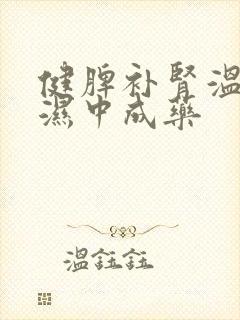 健脾补肾温
湿中成药
温鈺鈺